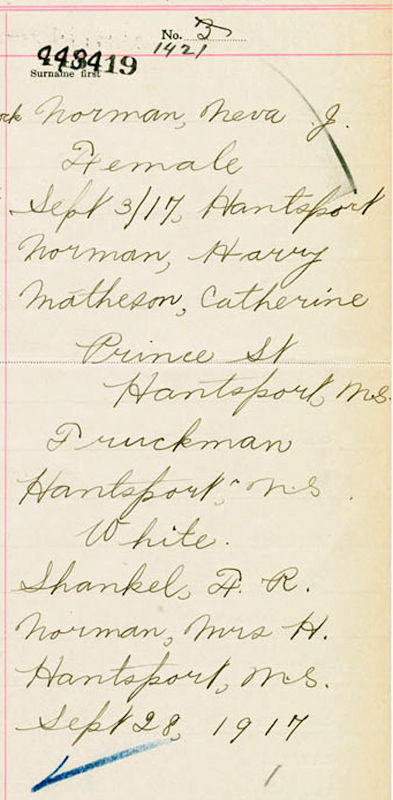 No. 3
1421
Surname first
Norman, Neva J.
Female
Sept 3/17, Hantsport
Norman, Harry
Matheson, Catherine
Prince St
Hantsport, N.S.
Truckman
Hantsport, N.S.
White.
Shankel, F. R.
Norman, Mrs H.
Hantsport, N.S.
Sept 28, 1917